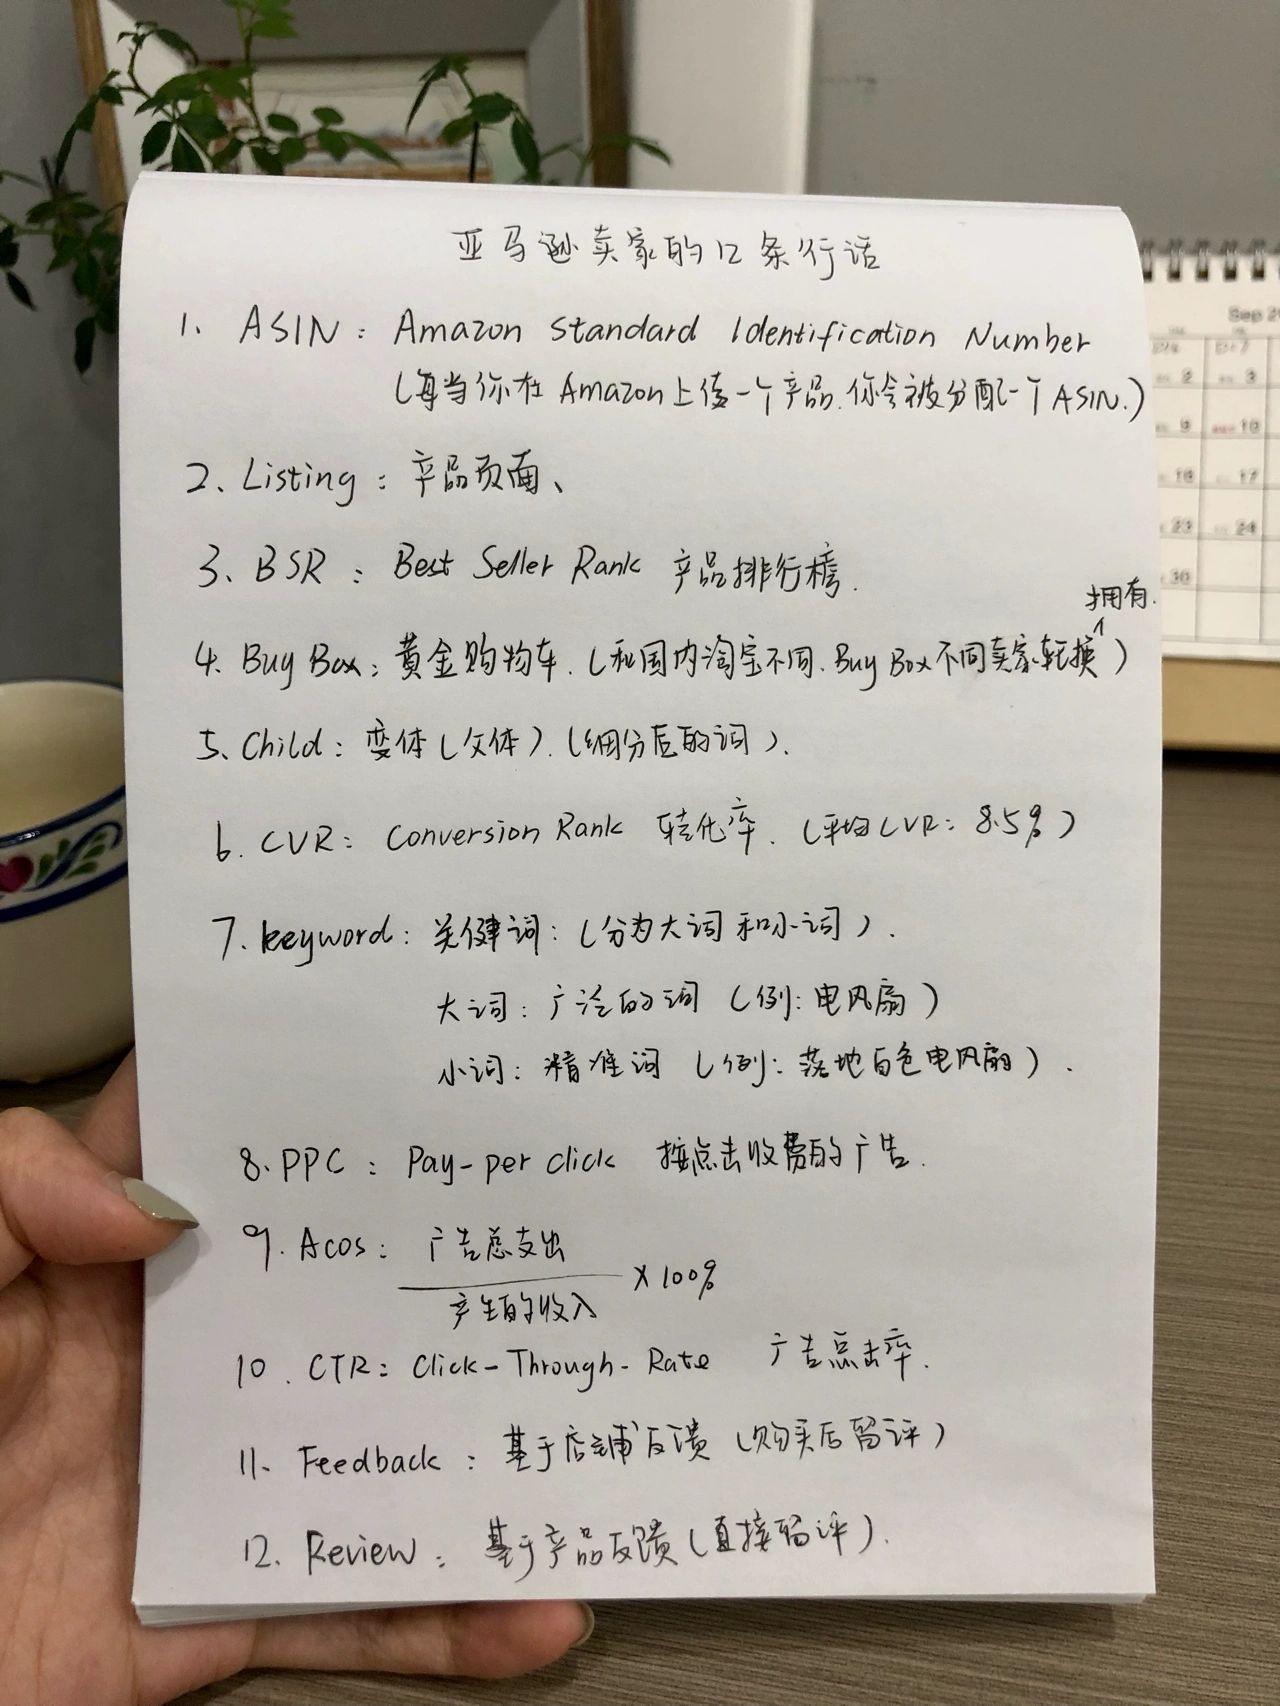 亚马逊卖家的12条行话
1、ASIN：Amazon Standard Identification Number
（每当你在Amazon上传一个产品.你会被分配一个ASIN.）
2、Listing：产品页面、
3、BSR：Best Seller Rank 产品排行榜.
拥有.
4. Buy Box：黄金购物车.（和国内淘宝不同.Buy Box不同卖家轮换）
5、Child：变体（父体）.（细分后的词）.
6. CVR：Conversion Rank 转化率.（平均CVR：8.5%）
7. keyword：关键词：（分为大词和小词）.
大词：广泛的词（例：电风扇）
小词：精准词（例：落地白色电风扇）.
8. PPC：Pay-per click 按点击收费的广告.
9. Acos：广告总支出
× 100%
产生的收入
10. CTR：Click-Through-Rate 广告点击率.
11、Feedback：基于店铺反馈（购买后留评）
12. Review：基于产品反馈（直接留评）.
Sep
2 3
9 10
16 17
23 24
30